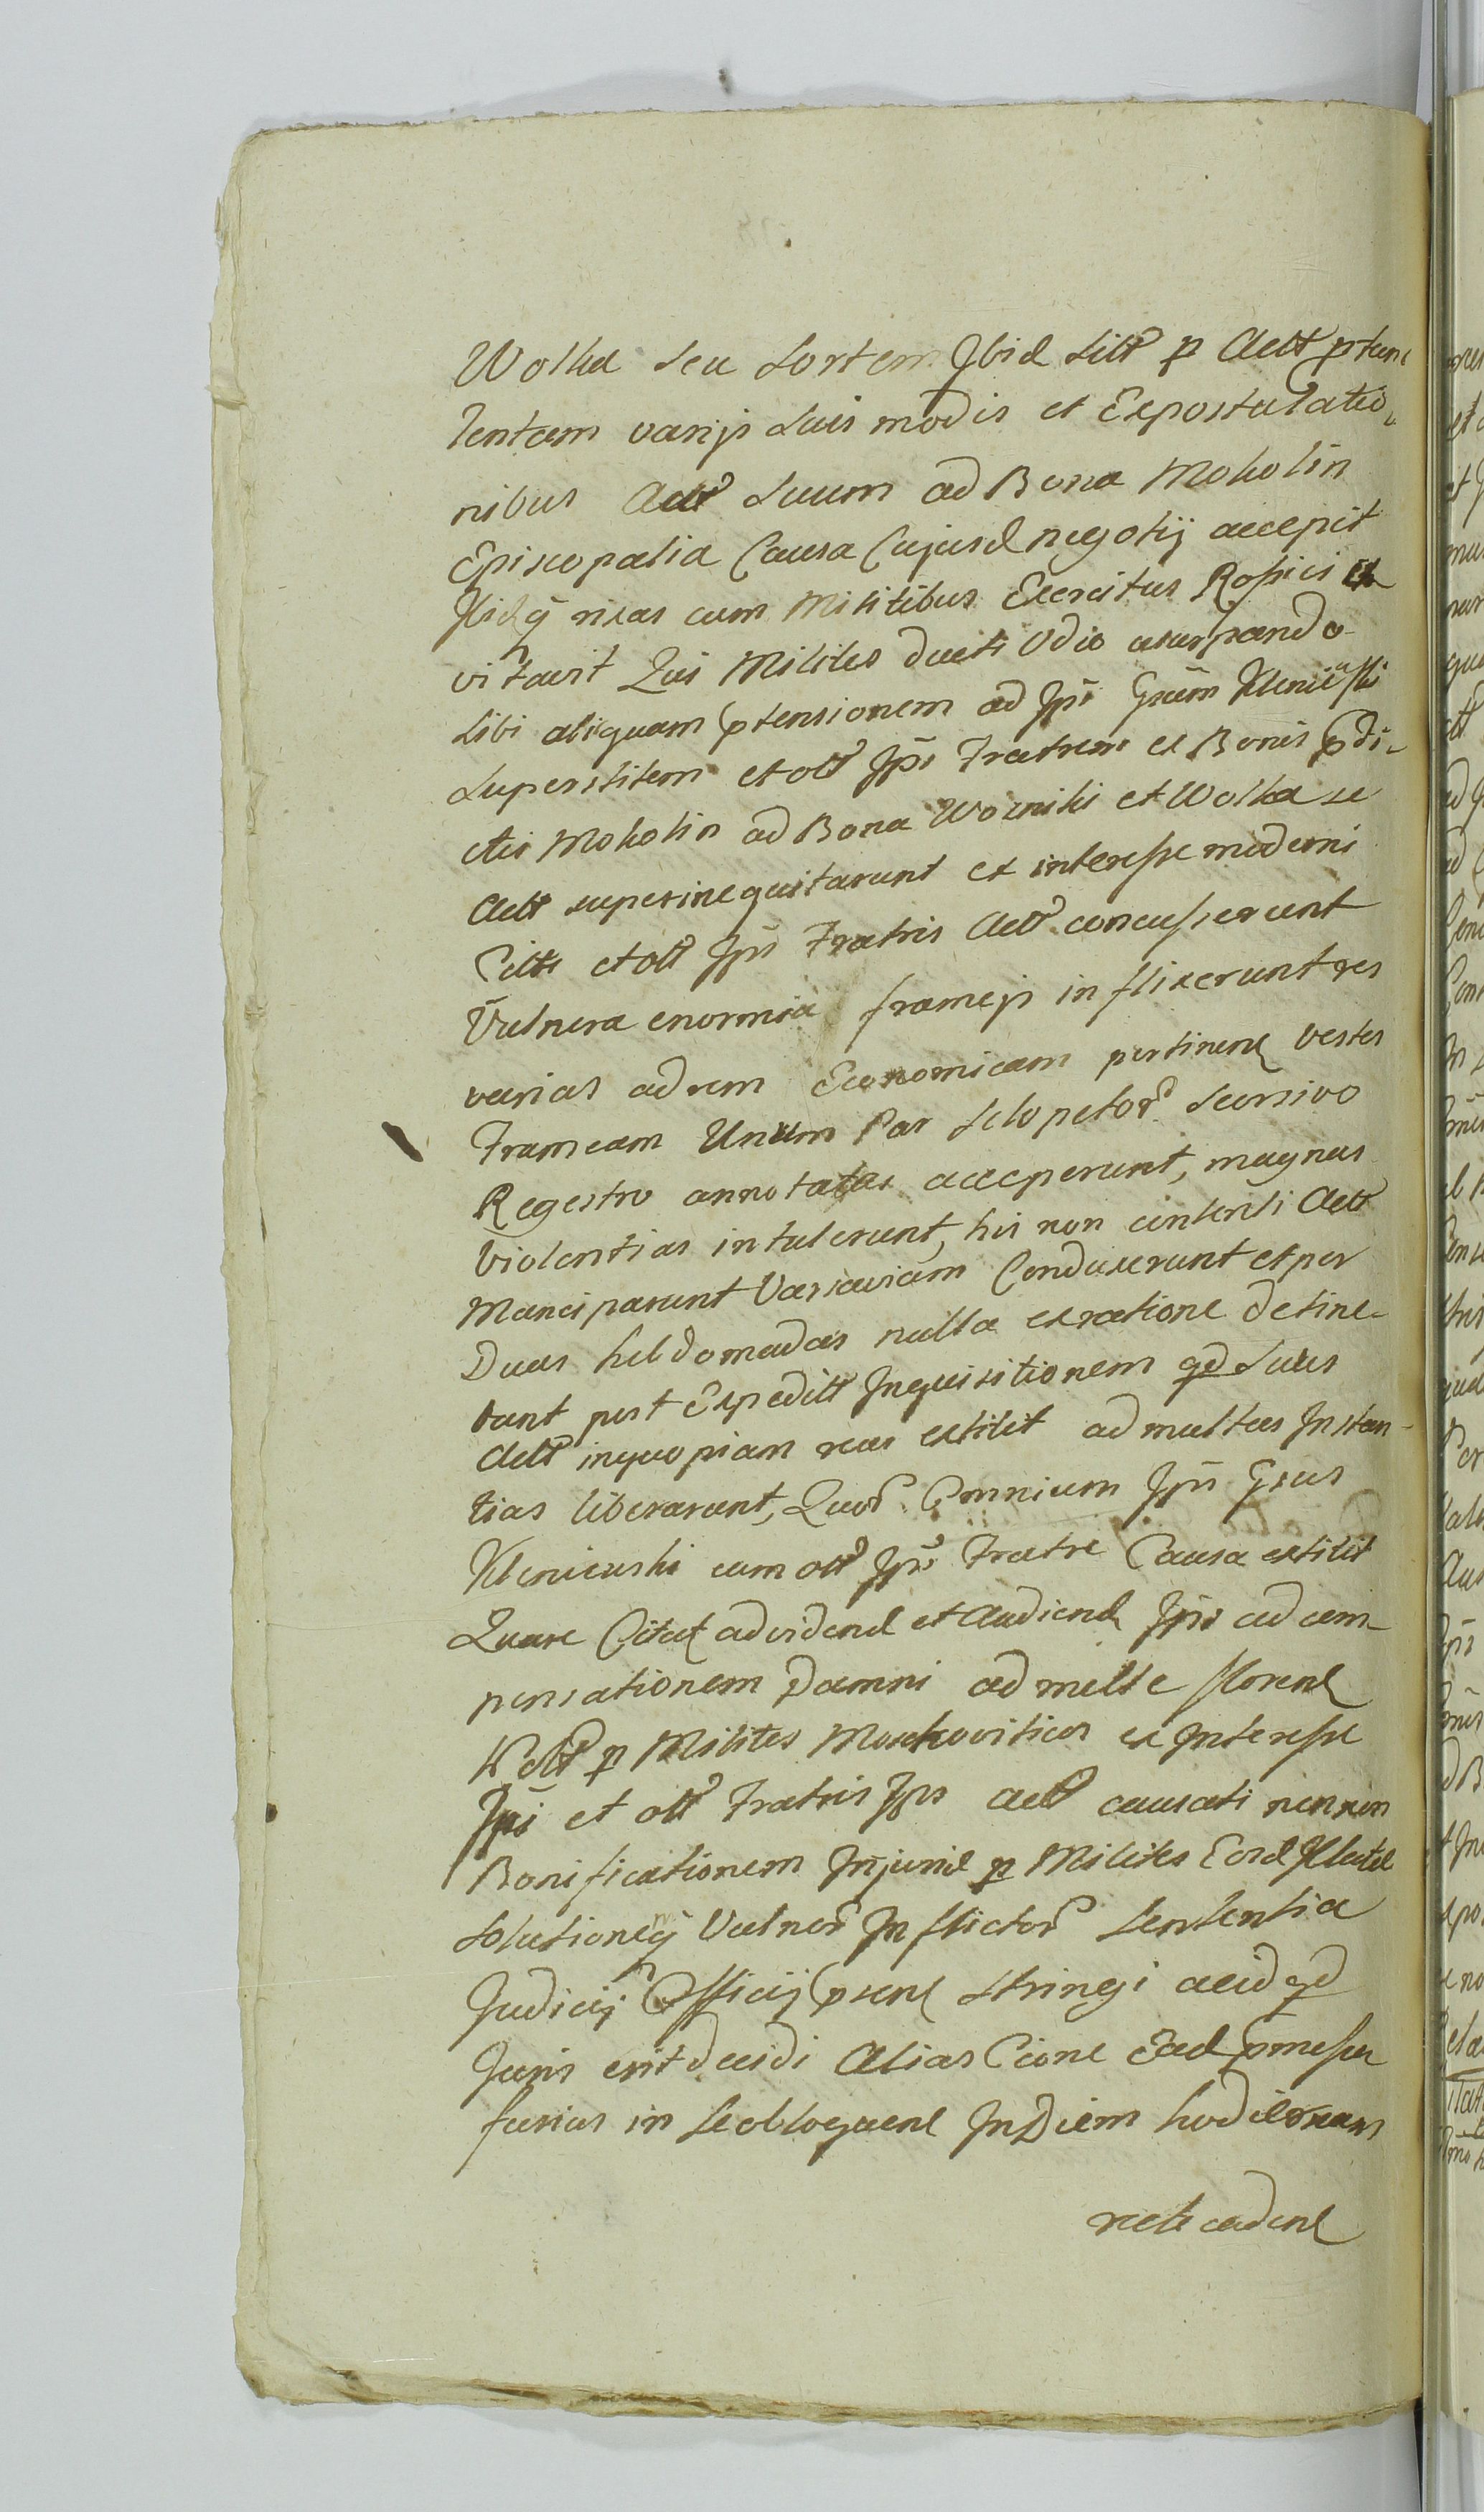 Wolka seu Sortem Ibid sitt p Actt ptun
tentam varijs suis modis et Expostulatio-
nibus Actt suum ad Bona Mokolin
Episcopalia Causa Cujusd negotij accepit
Ibidq rixas cum Militibus Exercitus Rossici
vitavit Qui Milites ducti Odio usurpando
sibi aliquam ptensionem ad Ipm Grsum Kleniewski
superstitem et ott Ipi Fratrem ex Bonis pdi-
ctis Mokolin ad Bona Wozniki et Wolka se
Actt superinequitarunt et interesse moderni
Citti et ott Ipi Fratris Actt concusserunt
Vulnera enormia frameis inflixerunt res
varias ad rem Economicam pertinen vestes
Frameam Unum Par Sclopetor seorsivo
Regestro annotatas acceperunt, magnas
violentias intulerunt, his non contenti Actt
Manciparunt Varsaviam Conduxerunt et per
Duas hebdomadas nulla ex ratione detine-
bant post Expeditt Inquisitionem qd suus
Actt in quopiam reus extitit ad multas Instan-
tias liberarunt, Quor Omnium Ipu Grsus
Kleniewski cum ott Ipi Fratre Causa extitit
Quare Citat ad vidend et Audiend Ipi ad com-
pensationem Damni ad mille floren
p Milites Moschoviticos ex Interesse
Ipi et ott Fratris Ips actt causati nennon
Bonificationem Injuria p Milites Eosd Illatae
Solutionemq Vulner Inflictor Sententia
Judicij Officij psen stringi acid qd
Juris erit decidi Alias Cione Ead
fusius in se obloquen In Diem hodiernam
recte caden